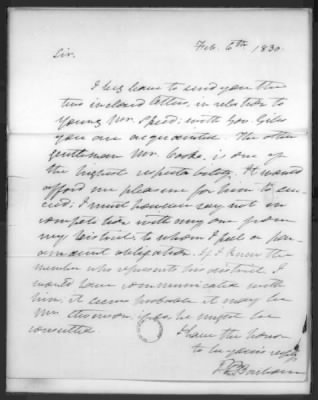 Feb. 6th 1830.
Sir,
I beg leave to send you the
two inclosed letters, in relation to
young Mr. Speed. with Gov. Giles
you are acquainted. The other
gentleman Mr. Cooke, is one of
the highest respectability. It would
afford me pleasure for him to suc-
ceed; I must however say not in
competition with any one from
my District, to whom I feel a par-
amount obligation. If I knew the
member who represents his district, I
would have communicated with
him, it seems probable it may be
Mr. if so, he might be
consulted
I have the honor
to be yours respy
P. P. Barbour